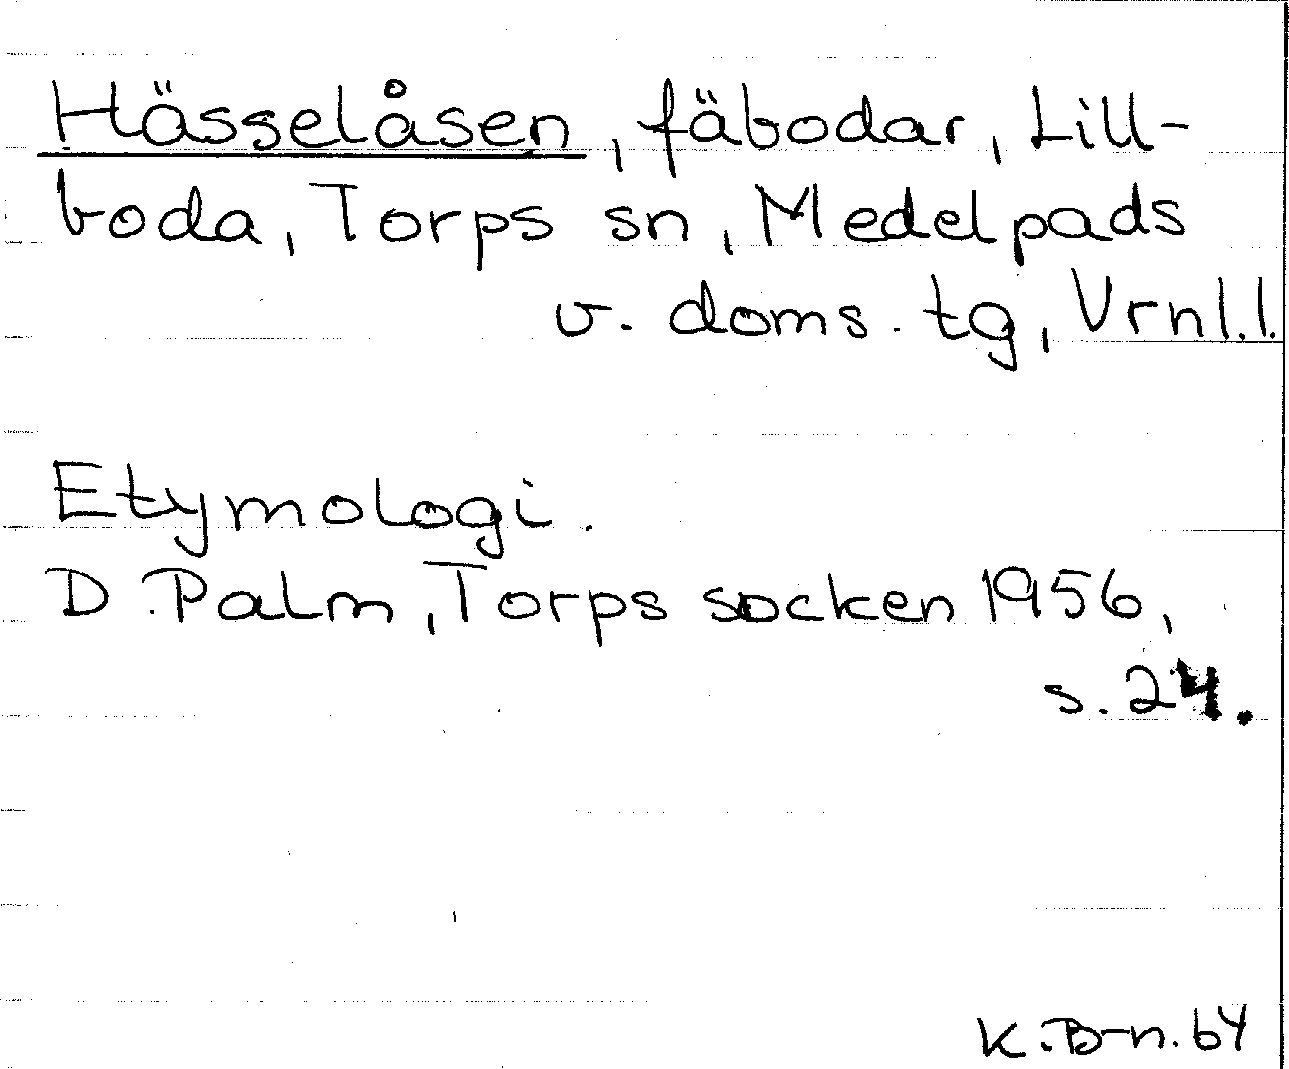 Hässelåsen, fäbodar, Lill-
boda, Torps sn, Medelpads
v. doms. tg, Vrnl. l.
Etymologi.
D. Palm, Torps socken 1956,
s. 24.
K. B-n. 64